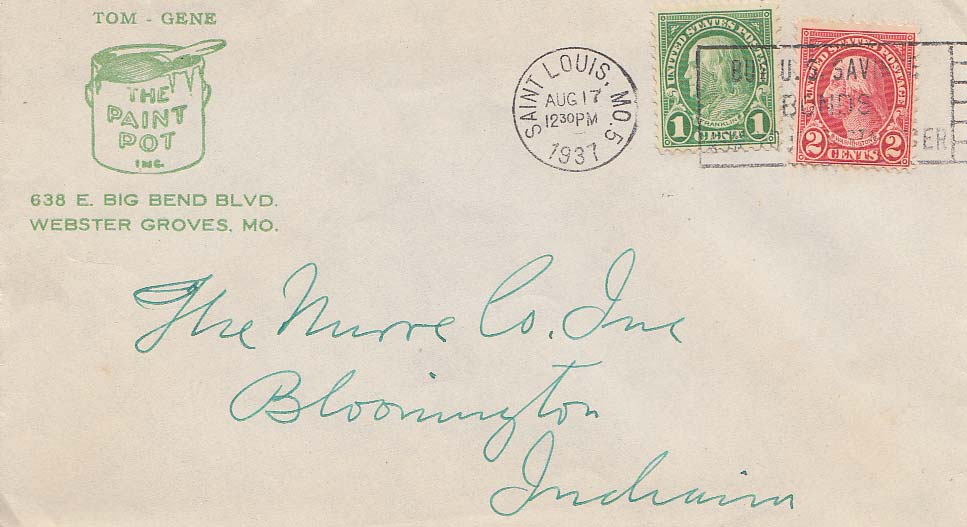 TOM - GENE
THE
PAINT
POT
INC.
638 E. BIG BEND BLVD.
WEBSTER GROVES, MO.
SAINT LOUIS, MO. 5
AUG 17
1230PM
1937
UNITED STATES POSTAGE
FRANKLIN
1 CENT 1
UNITED STATES POSTAGE
WASHINGTON
2 CENTS 2
BUY U.S. SAVINGS
BONDS
The Nurre Co. Inc
Bloomington
Indiana